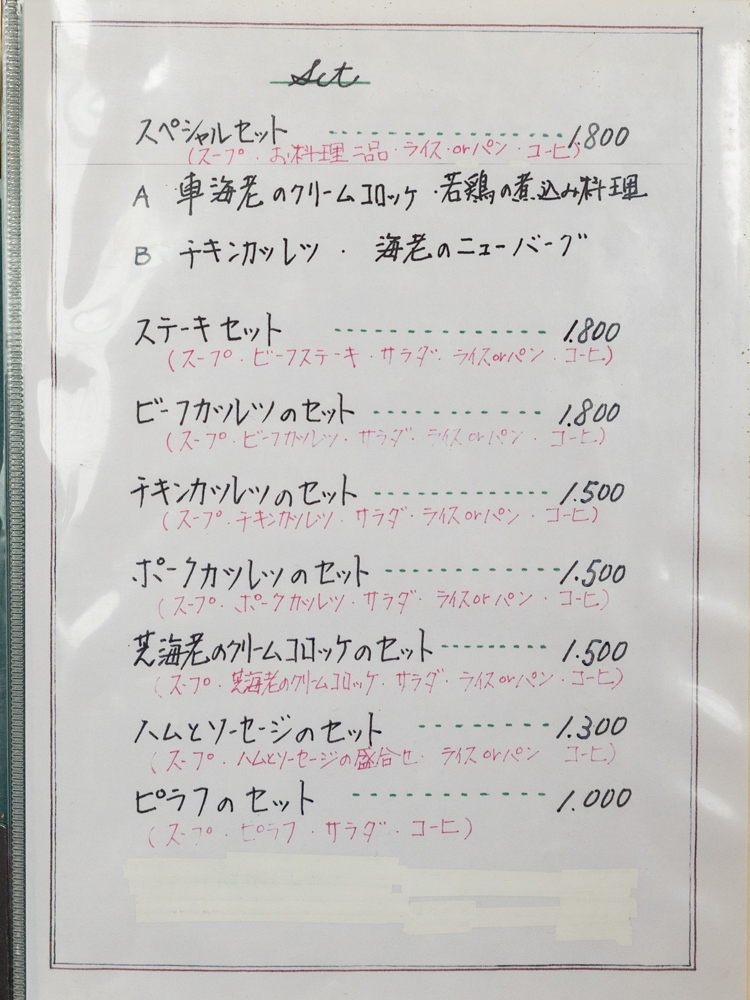 Set
スペシャルセット ------------- 1.800
(スープ・お料理二品・ライスorパン・コーヒ)
A 車海老のクリームコロッケ・若鶏の煮込み料理
B チキンカツレツ ・ 海老のニューバーグ
ステーキセット ------------- 1.800
(スープ・ビーフステーキ・サラダ・ライスorパン・コーヒ)
ビーフカツレツのセット ------------ 1.800
(スープ・ビーフカツレツ・サラダ・ライスorパン・コーヒ)
チキンカツレツのセット ------------- 1.500
(スープ・チキンカツレツ・サラダ・ライスorパン・コーヒ)
ポークカツレツのセット ------------- 1.500
(スープ・ポークカツレツ・サラダ・ライスorパン・コーヒ)
芝海老のクリームコロッケのセット --------- 1.500
(スープ・芝海老のクリームコロッケ・サラダ・ライスorパン・コーヒ)
ハムとソーセージのセット -------- 1.300
(スープ・ハムとソーセージの盛合せ・ライスorパン コーヒ)
ピラフのセット ----------- 1.000
(スープ・ピラフ・サラダ・コーヒ)